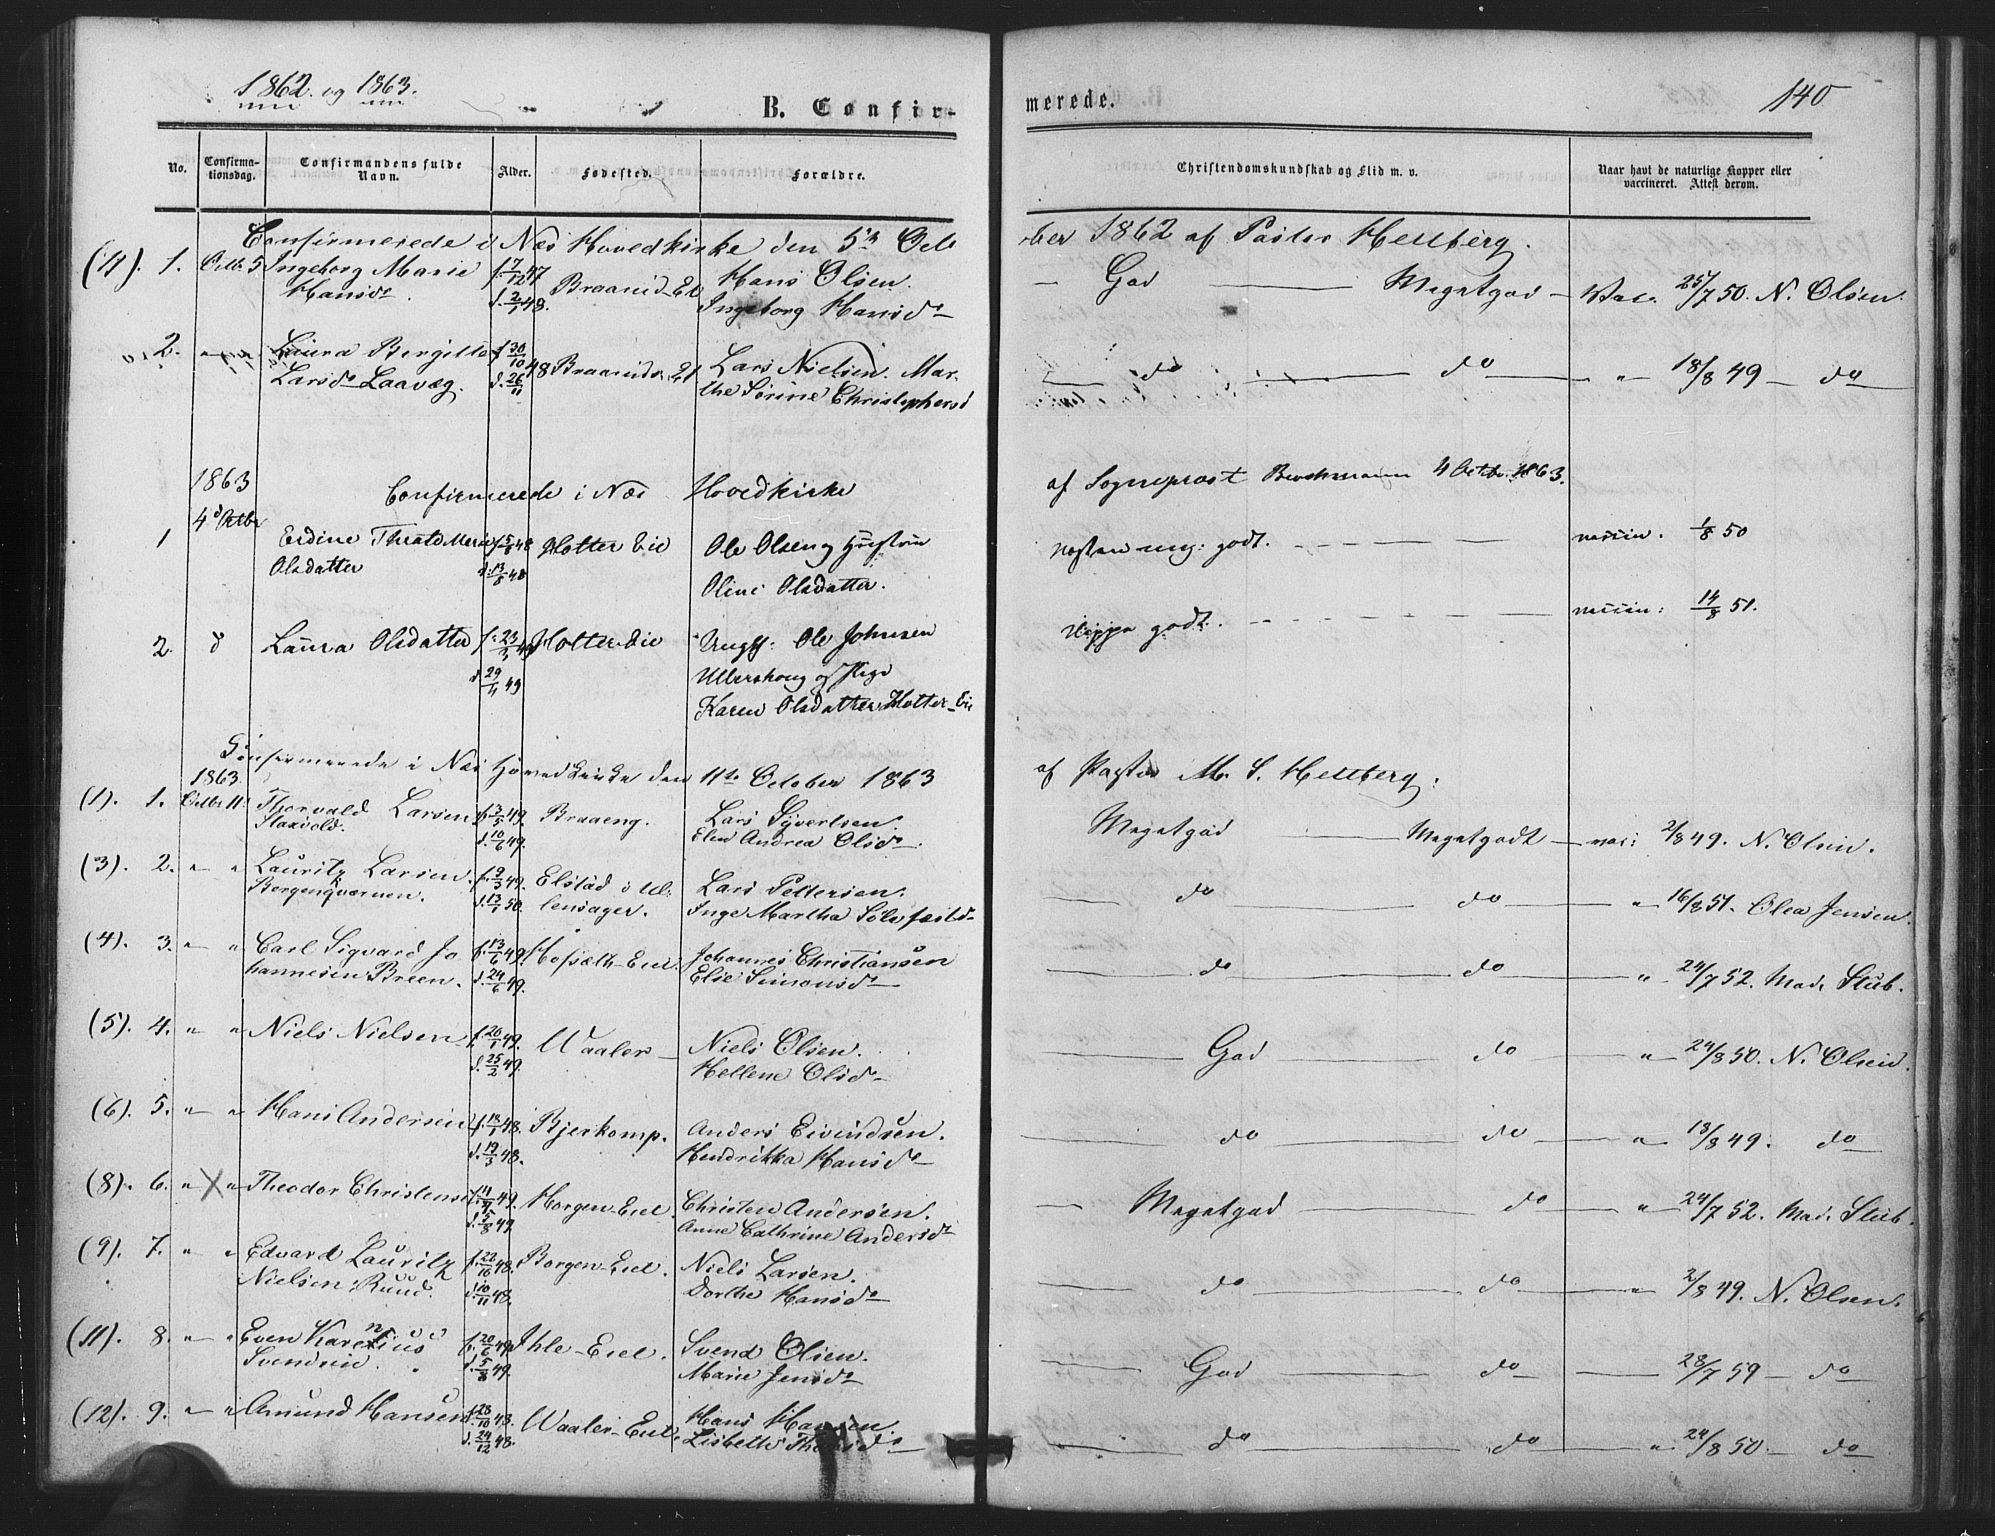 1862. og 1863.
B. Confir-
merede.
140
No.
Confirma-
tionsdag.
Confirmandens fulde
Navn.
Alder.
Fødested.
Forældre.
Christendomskundskab og Flid m. v.
Naar havt de naturlige Kopper eller
vaccineret. Attest derom.
Confirmerede i Næs Hovedkirke den 5te Octo
ber 1862 af Pastor Hellberg.
(4). 1. Octbr 5 Ingeborg Marie f. 7/12 47 Hans Olsen. God Megetgod Vac. 25/7 50. N. Olsen.
Hansd. d. 2/1 48. Ingeborg Hansd
2. Laura Bergitte f. 30/10 48 Lars Nielsen. Mar- do do " 18/8 49 do
Larsd Laavæg. d. 26/11 the Sørine Christophersd
1863 Confirmerede i Næs Hovedkirke af Sogneprest 4 Octbr. 1863.
4d Octbr
1 Thrald Marie f. 5/8 48 Holter Eie Ole Olsen og Hustru næsten mg: godt. vaccin. 1/8 50
Olsdatter d. 13/8 48 Oline Olsdatter.
2. d Laura Olsdatter f. 23/3 49 Holter Eie Ungk: Ole Johnsen godt. vaccin: 14/8 51.
d. 29/4 49 Ullershoug og Pige
Karen Olsdatter Holter-Eie
Confirmerede i Næs Hovedkirke den 11te October 1863 af Pastor M. S. Hellberg.
1863
(1). 1. Octbr 11. Thorvald Larsen f. 3/5 49. Braaeng. Lars Syvertsen. Megetgod Megetgodt vac: 2/8 49. N. Olsen.
d. 10/6 49. Elen Andrea Olsd.
(3). 2. " " Lauritz Larsen f. 9/3 49. Elstad i Ul- Lars Pettersen. do do " 16/8 51. Olea Jensen.
Borgenqværnen. d. 13/1 50. lensager. Inge Martha Sølvfæstd
(4). 3. " " Carl Sigvard Jo f. 13/6 49. Hofsæth-Eiet. Johannes Christiansen do do " 24/7 52. Mad. Stub.
hannesen Breen. d. 24/6 49. Else Simonsd
(5). 4. " " Niels Nielsen f. 20/1 49. Waaler Niels Olsen. God do " 24/8 50. N. Olsen.
d. 25/2 49. Hellene Olsd
(6). 5. " " Hans Andersen f. 18/1 48. Bjerkomp. Anders Eivindsen. do do " 18/8 49. do
d. 19/3 48. Hendrikka Hansd
(8). 6. " X " Theodor Christens 49. Horgen-Eiet Christen Andersen. Megetgod do " 24/7 52. Mad. Stub.
d. 5/8 49 Anne Cathrine Andersd
(9). 7. " " Edvard Lauritz f. 22/10 48. Borgen-Eiet. Niels Larsen. do do " 2/8 49. N. Olsen.
Nielsen Ruud. d. 10/11 48. Dorthe Hansd
(11). 8. " " Even Karenius f. 20/6 49. Ihle-Eiet. Svend Olsen. God do 28/7 59 do
Svendsen. d. 5/8 49. Marie Jensd
(12). 9. " " Amund Hansen f. 28/10 48. Waaler-Eiet. Hans Hansen. do do " 24/8 50. do
d. 24/12 48. Lisbeth